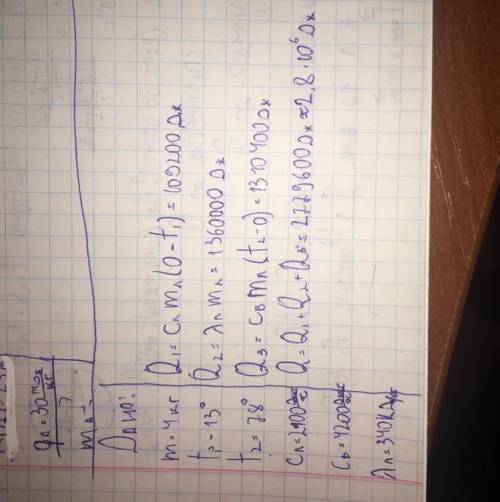 qл = 30 МДж/кг
mл - ?
Дано:
m = 4 кг
t₁ - 13°
t₂ = 78°
Cл = 2100 Дж/
Cв = 4200
λл = 340к Дж
Q₁ = Cл mл (0 - t₁) = 109200 Дж
Q₂ = λл mл = 1360000 Дж
Q₃ = Cв mл (t₂ - 0) = 1310400 Дж
Q = Q₁ + Q₂ + Q₃ = 2779600 Дж ≈ 2,8 · 10⁶ Дж